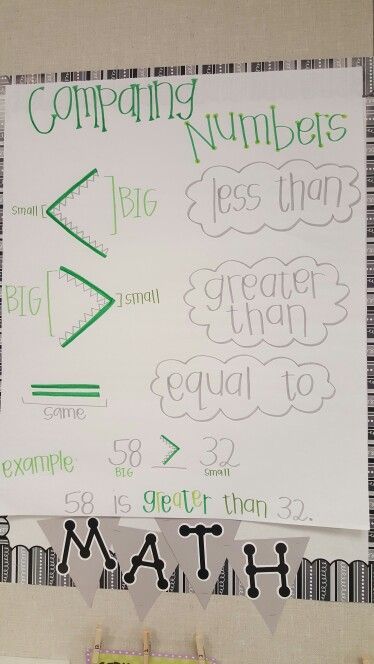 Comparing
Numbers
small < BIG less than
BIG > small greater
than
= equal to
same
example 58 > 32
BIG small
58 is greater than 32.
MATH